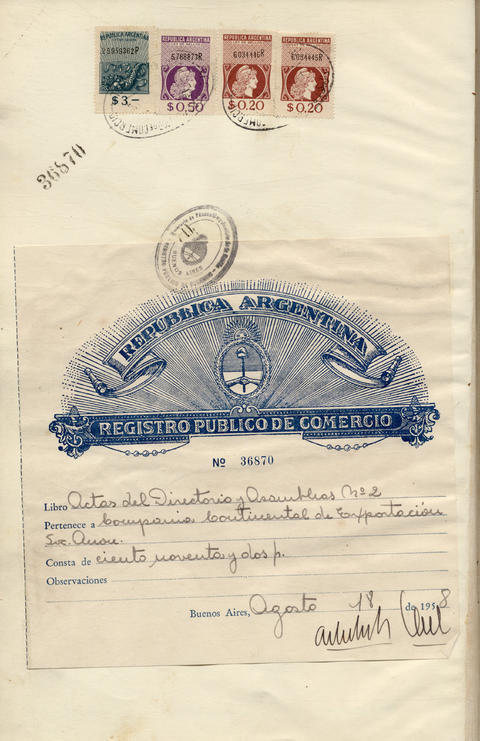 REPUBLICA ARGENTINA REPUBLICA ARGENTINA REPUBLICA ARGENTINA REPUBLICA ARGENTINA
$3,– $0,50 $0,20 $0,20
36870
BUENOS AIRES
REPUBLICA ARGENTINA
REGISTRO PUBLICO DE COMERCIO
Nº 36870
Libro Actas del Directorio y Asambleas Nº 2
Pertenece a Compania Continental de Exportación
Soc. Anon.
Consta de ciento noventa y dos p.
Observaciones
Buenos Aires, Agosto 18 de 1958